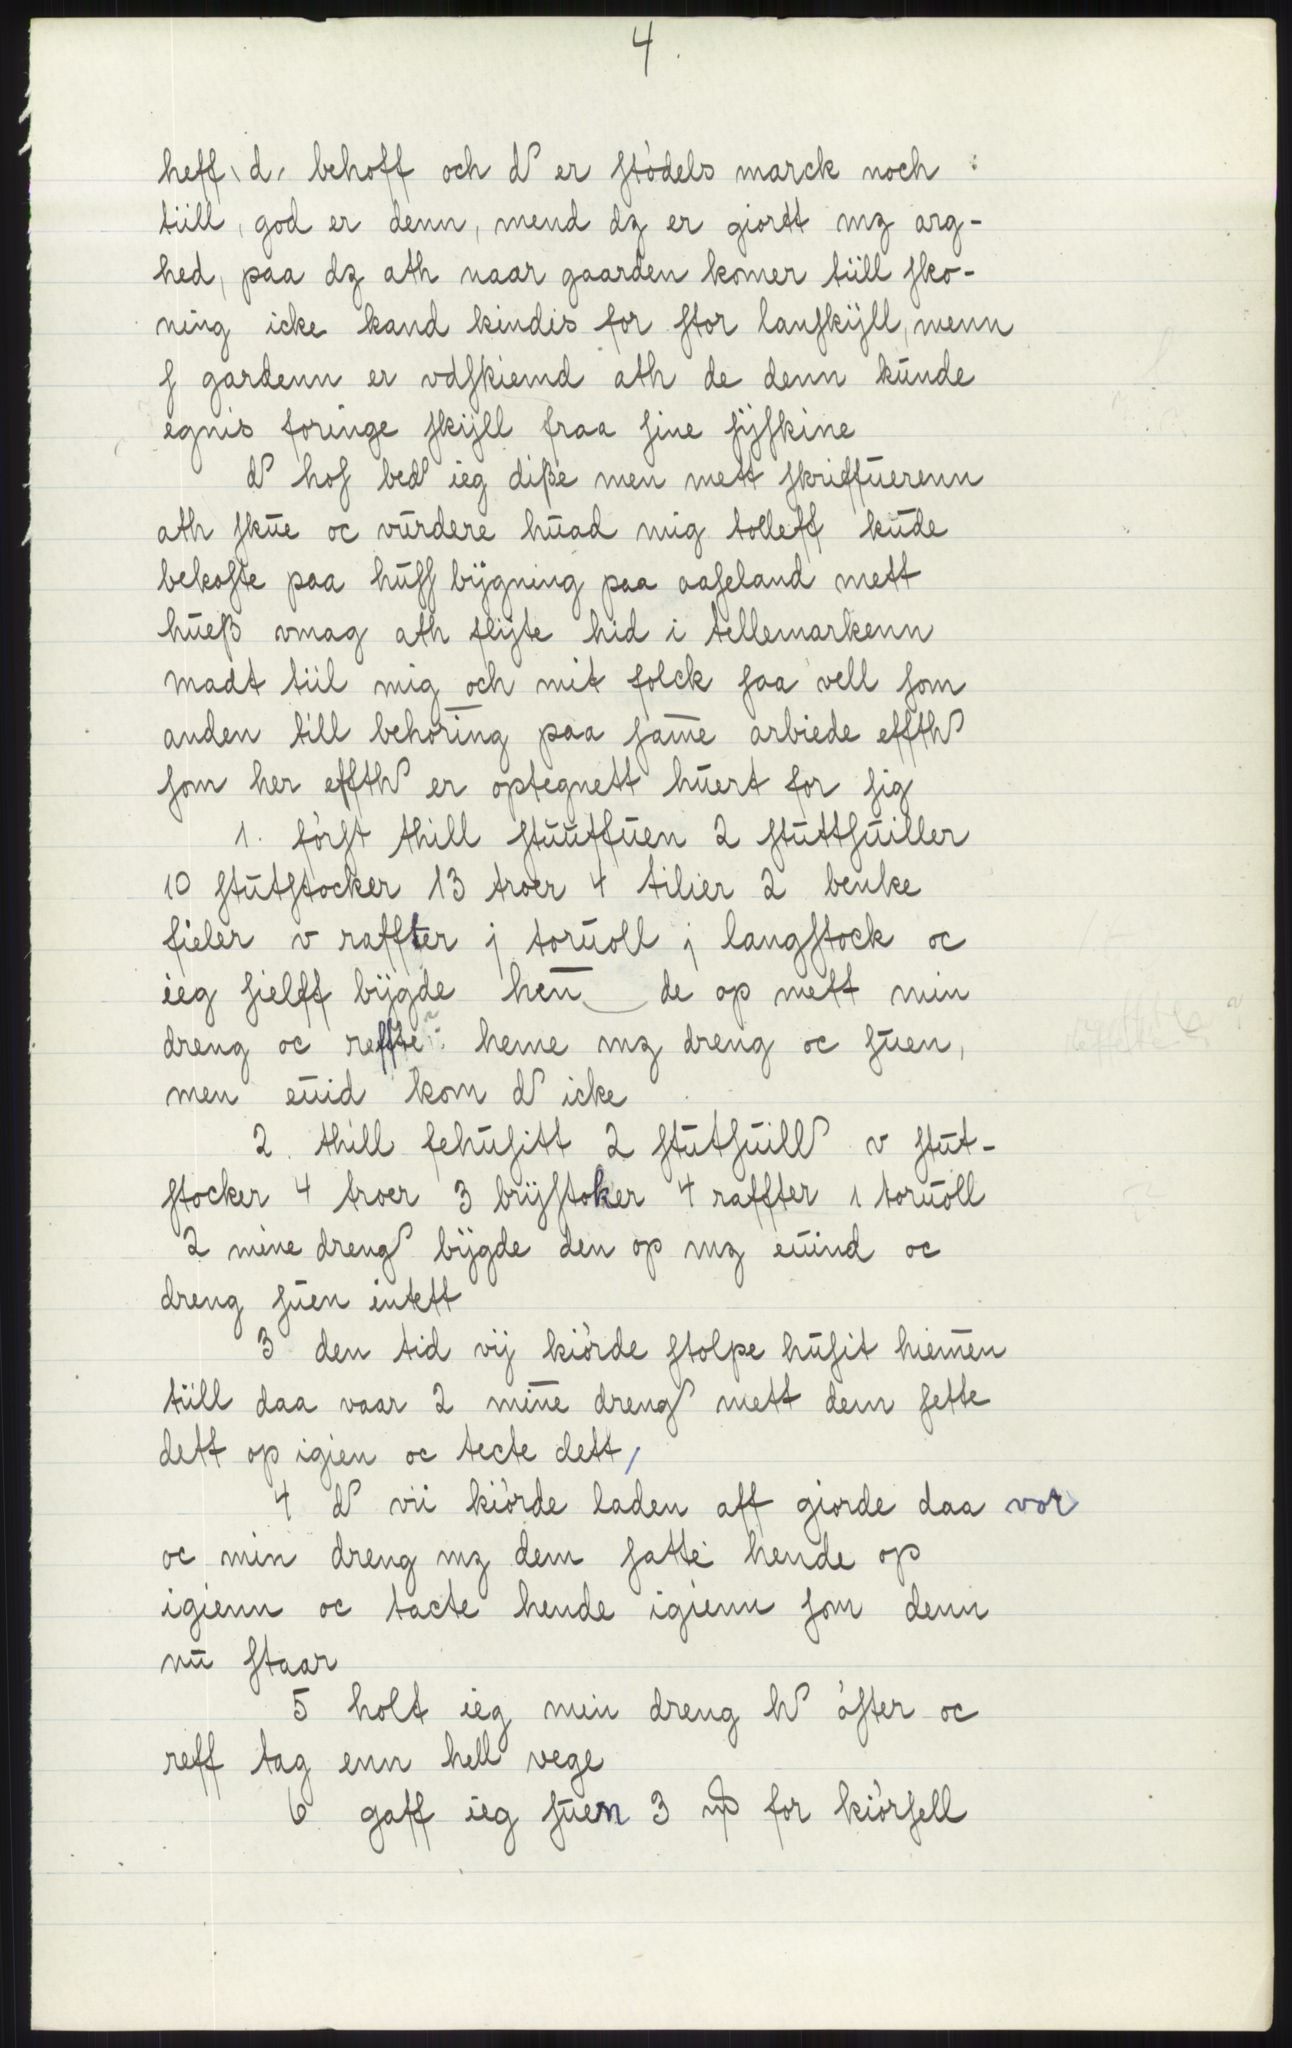 4.
heff, d, behoff och d er stödels marck noch
tiill, god er denn, mend dz er giortt mz arg-
hed, paa dz ath naar gaarden komer tiill sko-
ning icke kand kindis for stor lanskijll, menn
s gardenn er vdskiemd ath de denn kunde
egnis foringe skijll fraa sine sÿskine
d hos bed ieg diße men mett skriffuerenn
ath skue oc vurdere huad mig tolleff kude
bekoste paa huss bÿgning paa aaseland mett
hueß vmag ath flijte hid i tellemarkenn
madt tiil mig och mit folck saa vell som
anden till behoring paa same arbiede effth
som her effth er optegnett huert for sig
1. först thill stuutsuen 2 stuttsuiller
10 stutstocker 13 troer 4 tilier 2 benke
fieler v raffter j toruoll j langstock oc
ieg sielff bÿgde hen de op mett min
dreng oc reffte heme mz dreng oc suen,
men euid kom d icke
2. thill fehusitt 2 stutsuill v stut-
stocker 4 troer 3 brÿstoker 4 raffter 1 toruoll
2 mine dreng bÿgde den op mz euind oc
dreng suen intett
3 den tid vij kiörde stolpe husit hiemen
tiill daa vaar 2 mine dreng mett dem sette
dett op igien oc tecte dett,
4 d vii kiörde laden aff giorde daa vor
oc min dreng mz dem satte hende op
igienn oc tacte hende igienn som denn
nu staar
5 holt ieg min dreng h öster oc
reff tag enn hell vege
6 gaff ieg suen 3 for kiörsell